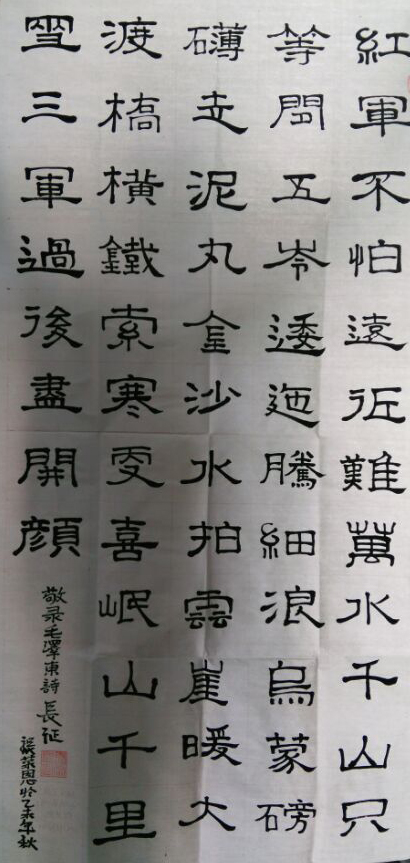 紅軍不怕遠征難萬水千山只
等閒五岺逶迤騰細浪烏蒙磅
礴走泥丸金沙水拍雲崖暖大
渡橋橫鐵索寒更喜岷山千里
雪三軍過後盡開顏
敬录毛澤東詩長征
恩於乙未年秋